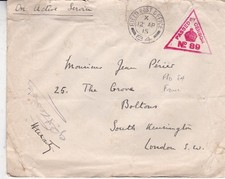 On Active Service
FIELD POST OFFICE
X
12 AP
15
PASSED BY CENSOR
NE 89
Monsieur Jean Périer
25. The Grove
Boltons
South Kensington
London S.W.